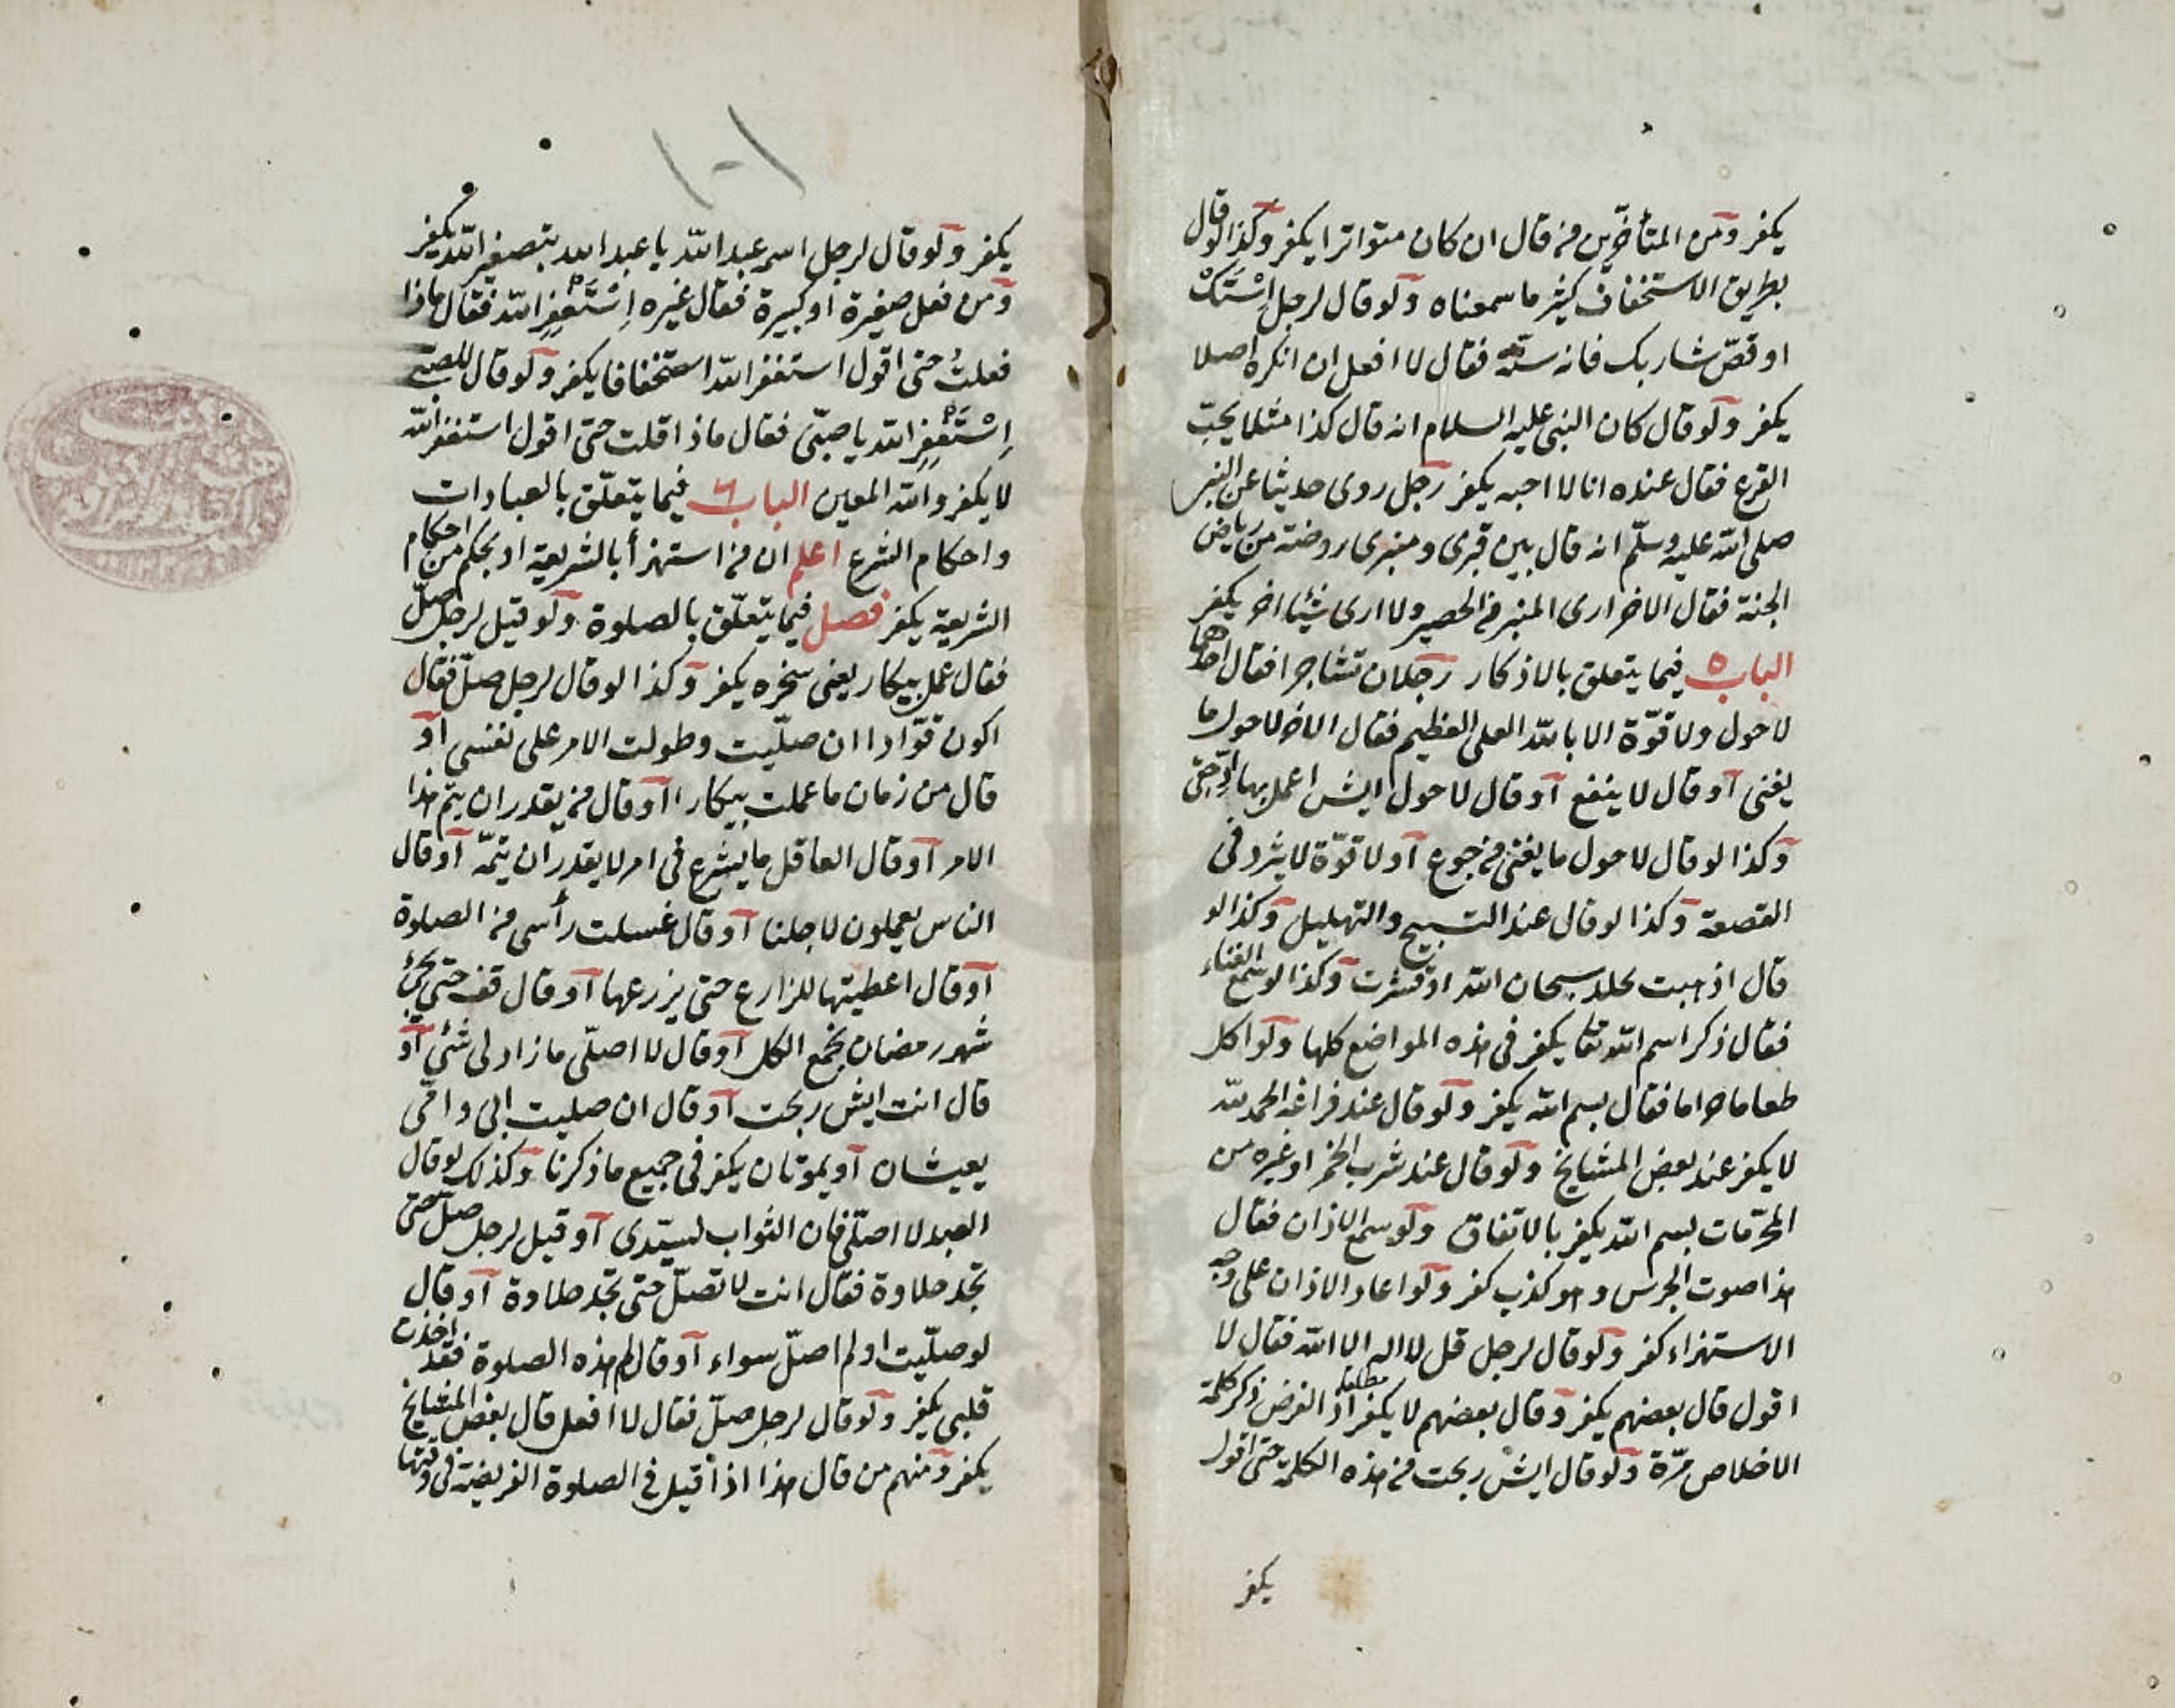 يكفر ومن المتأخرين من قال ان كان متواترا يكفر وكذا لو قال
بطريق الاستخفاف كثير ما سمعناه ولو قال لرجل اِسْتَكْ
او قصّ شاربك فانه سنّة فقال لا افعل ان انكره اصلا
يكفر ولو قال كان النبي عليه السلام انه قال كذا مثلا يحبّ
القرع فقال عنده انا لا احبه يكفر رجل روى حديثا عن النبي
صلى الله عليه وسلّم انه قال بين قبرى ومنبرى روضة من رياض
الجنة فقال الاخر ارى المنبر والحصير ولا ارى شيئا اخر يكفر
الباب ٥ فيما يتعلق بالاذكار رجلان تشاجرا فقال احدهما
لا حول ولا قوّة الا بالله العلى العظيم فقال الاخر لا حول ما
يغنى او قال لا ينفع او قال لا حول ايش اعمل بها
وكذا لو قال لا حول ما يغنى من جوع او لا قوّة لا يثرد فى
القصعة وكذا لو قال عند التسبيح والتهليل وكذا لو
قال اذهبت بجلد سبحان الله او قشرت وكذا لو سمع الغناء
فقال ذكر اسم الله تعا يكفر فى هذه المواضع كلها ولو اكل
طعاما حراما فقال بسم الله يكفر ولو قال عند فراغه الحمد لله
لا يكفر عند بعض المشايخ ولو قال عند شرب الخمر او غيره من
المحرّمات بسم الله يكفر بالاتفاق ولو سمع الاذان فقال
هذا صوت الجرس وهو كذب كفر ولو اعاد الاذان على وجه
الاستهزاء كفر ولو قال لرجل قل لا اله الا الله فقال لا
اقول قال بعضهم يكفر وقال بعضهم لا يكفر مطلقا اذ الغرض ذكر كلمة
الاخلاص مرّة ولو قال ايش ربحت من هذه الكلمة حتى اقول
يكفر
١٠١
يكفر ولو قال لرجل اسمه عبد الله يا عبد الله بتصغير الله يكفر
ومن فعل صغيرة او كبيرة فقال غيره اِسْتَغْفِرِ الله فقال ماذا
فعلتُ حتى اقول استغفر الله استخفافا يكفر ولو قال للصبى
اِسْتَغْفِرِ الله يا صبىّ فقال ماذا قلت حتى اقول استغفر الله
لا يكفر والله المعين الباب ٦ فيما يتعلّق بالعبادات
واحكام الشرع اعلم ان من استهزأ بالشريعة او بحكم من احكام
الشريعة يكفر فصل فيما يتعلّق بالصلوة ولو قيل لرجل صلّ
فقال عمل بيكار يعنى سخره يكفر وكذا لو قال لرجل صلّ فقال
اكون قوّادا ان صلّيت وطولت الامر على نفسى او
قال من زمان ما عملت بيكارا او قال من يقدر ان يتم هذا
الامر او قال العاقل ما يشرع فى امر لا يقدر ان يتمّه او قال
الناس يعملون لاجلنا او قال غسلت رأسى من الصلوة
او قال اعطيتها للزارع حتى يزرعها او قال قف حتى يجئ
شهر رمضان نجمع الكل او قال لا اصلّى ما زاد لى شئ او
قال انت ايش ربحت او قال ان صليت ابى وامّى
يعيشان او يموتان يكفر فى جميع ما ذكرنا وكذلك لو قال
العبد لا اصلّى فان الثواب لسيّدى او قيل لرجل صلّ حتى
تجد حلاوة فقال انت لا تصلّ حتى تجد حلاوة او قال
لو صلّيت او لم اصلّ سواء او قال لم هذه الصلوة فقد اخذت
قلبى يكفر ولو قال لرجل صلّ فقال لا افعل قال بعض المشايخ
يكفر ومنهم من قال هذا اذا قيل فى الصلوة الفريضة فى وقتها